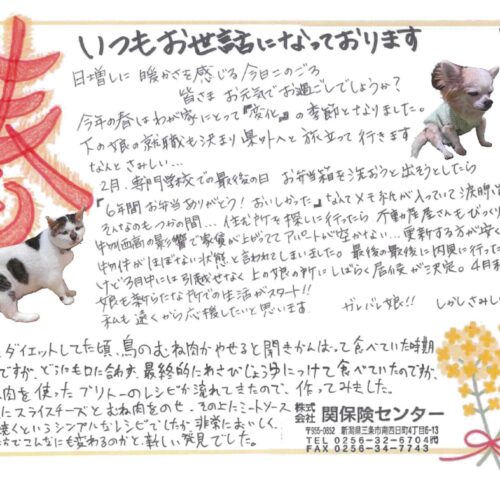 春
いつもお世話になっております
日増しに 暖かさを感じる今日このごろ
皆さま お元気でお過ごしでしょうか?
今年の春はわが家にとって『変化』の季節となりました。
下の娘の就職も決まり 県外へと 旅立って行きます
なんと さみしい…
2月、専門学校での最後の日 お弁当箱を洗おうと出そうとしたら
『6年間お弁当ありがとう!おいしかった』なんてメモ紙が入っていて涙
そんなのもつかの間… 住む所を探しに行ったら 不動産屋さんもびっくり
の影響で家賃が上がってて アパートが空かない…更新する方が
物件がほぼない状態 と言われてしまいました。最後の最後に内見に行った
けど3月中には引越せなく 上の娘の所にしばらく居候が決定。4月
娘も新たな所での生活がスタート!! ガンバレ娘!! しかしさみし
私も遠くから応援したいと思います
ダイエットしてた頃、鳥のむね肉がやせると聞きがんばって食べていた時期
ですが、どにも口に合わず、最終的にわさびじょう油につけて食べていたのですが、
肉を使ったブリトーのレシピが流れてきたので、作ってみました。
にスライスチーズとむね肉をのせ、その上にミートソース
焼くというシンプルなレシピでしたが非常においしく、
でこんなにも変わるのかと新しい発見でした。
株式会社 関保険センター
〒955-0852 新潟県三条市南四日町4丁目6-13
TEL 0256-32-6704
FAX 0256-34-7743